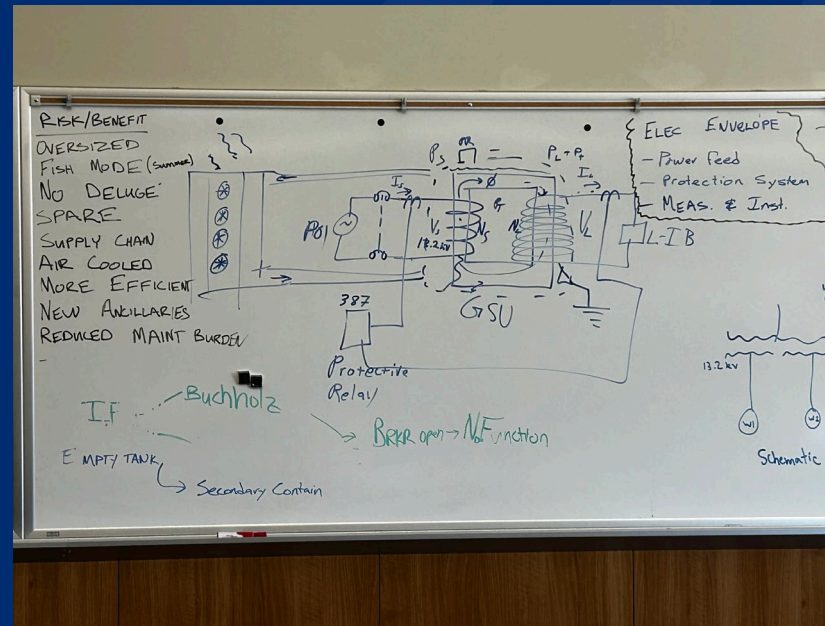 RISK/BENEFIT
OVERSIZED
FISH MODE (summer)
NO DELUGE
SPARE
SUPPLY CHAIN
AIR COOLED
MORE EFFICIENT
NEW ANCILLARIES
REDUCED MAINT BURDEN
-
Ps
PL + Pt
Is
Ø
IL
Vs
NS
VL
GSU
L-IB
387
Protective
Relay
ELEC ENVELOPE
- Power Feed
- Protection System
- MEAS. & Inst.
13.2 kv
W1
W2
Schematic
I.F
Buchholz
BRKR open → No Function
EMPTY TANK
Secondary Contain